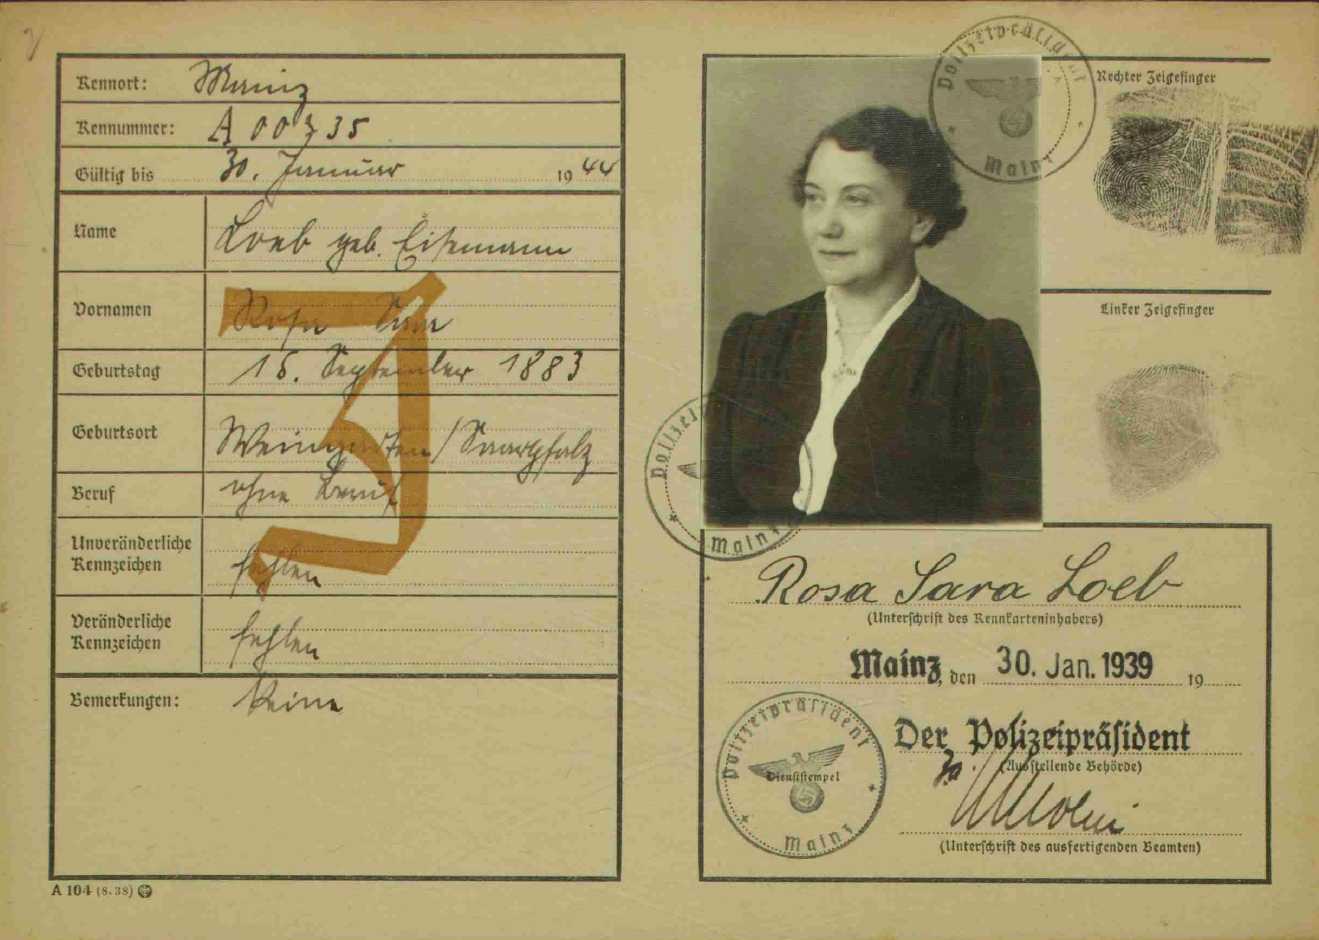 Kennort: Mainz
Kennummer: A 00335
Gültig bis 30. Januar 1944
Name Loeb geb. Eisemann
Vornamen Rosa Sara
Geburtstag 16. September 1883
Geburtsort Weingarten/Saarpfalz
Beruf ohne Beruf
Unveränderliche
Kennzeichen fehlen
Veränderliche
Kennzeichen fehlen
Bemerkungen: Keine
A 104 (8.38)
J
Polizeipräsident
Mainz
Rechter Zeigefinger
Linker Zeigefinger
Polizei
Mainz
Rosa Sara Loeb
(Unterschrift des Kennkarteninhabers)
Mainz, den 30. Jan. 1939 19
Polizeipräsident
Dienststempel
Mainz
Der Polizeipräsident
(Ausstellende Behörde)
(Unterschrift des ausfertigenden Beamten)